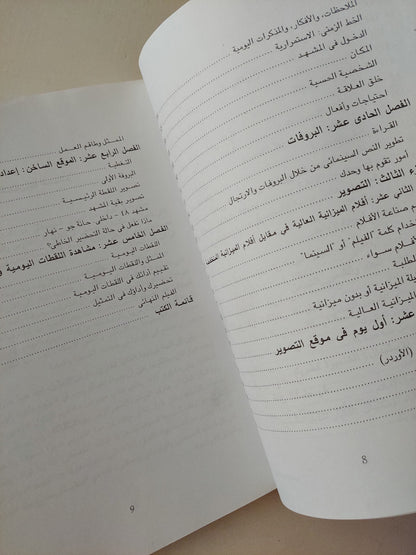 الملاحظات، والأفكار، والمذكرات اليومية
الخط الزمنى: الاستمرارية
الدخول فى المشهد
المكان
الشخصية الحسية
خلق العلاقة
احتياجات وأفعال
الفصل الحادى عشر: البروفات
القراءة
تطوير النص السينمائى من خلال البروفات والارتجال
أمور تقوم بها وحدك
زء الثالث: التصوير
الثانى عشر: أفلام الميزانية العالية فى مقابل أفلام الميزانية المنخفض
م صناعة الأفلام
خدام كلمة "الفيلم" أو "السينما"
أفلام سواء
لطلبة
يلة الميزانية أو بدون ميزانية
يزانية العالية
عشر: أول يوم فى موقع التصوير
(الأوردر)
8
الممثل وطاقم العمل
الفصل الرابع عشر: الموقع الساخن: إعداد
التغطية
البروفة الأولى
تصوير اللقطة الرئيسية
تصوير بقية المشهد
مشهد ٤٨ - داخلى حانة جو - نهار
ماذا تفعل فى حالة التحضير الخاطئ؟
الفصل الخامس عشر: مشاهدة اللقطات اليومية و
اللقطات اليومية
الممثل واللقطات اليومية
تقييم أدائك فى اللقطات اليومية
تحضيرك وأداؤك فى التمثيل
الفيلم النهائى
قائمة الكتب
9